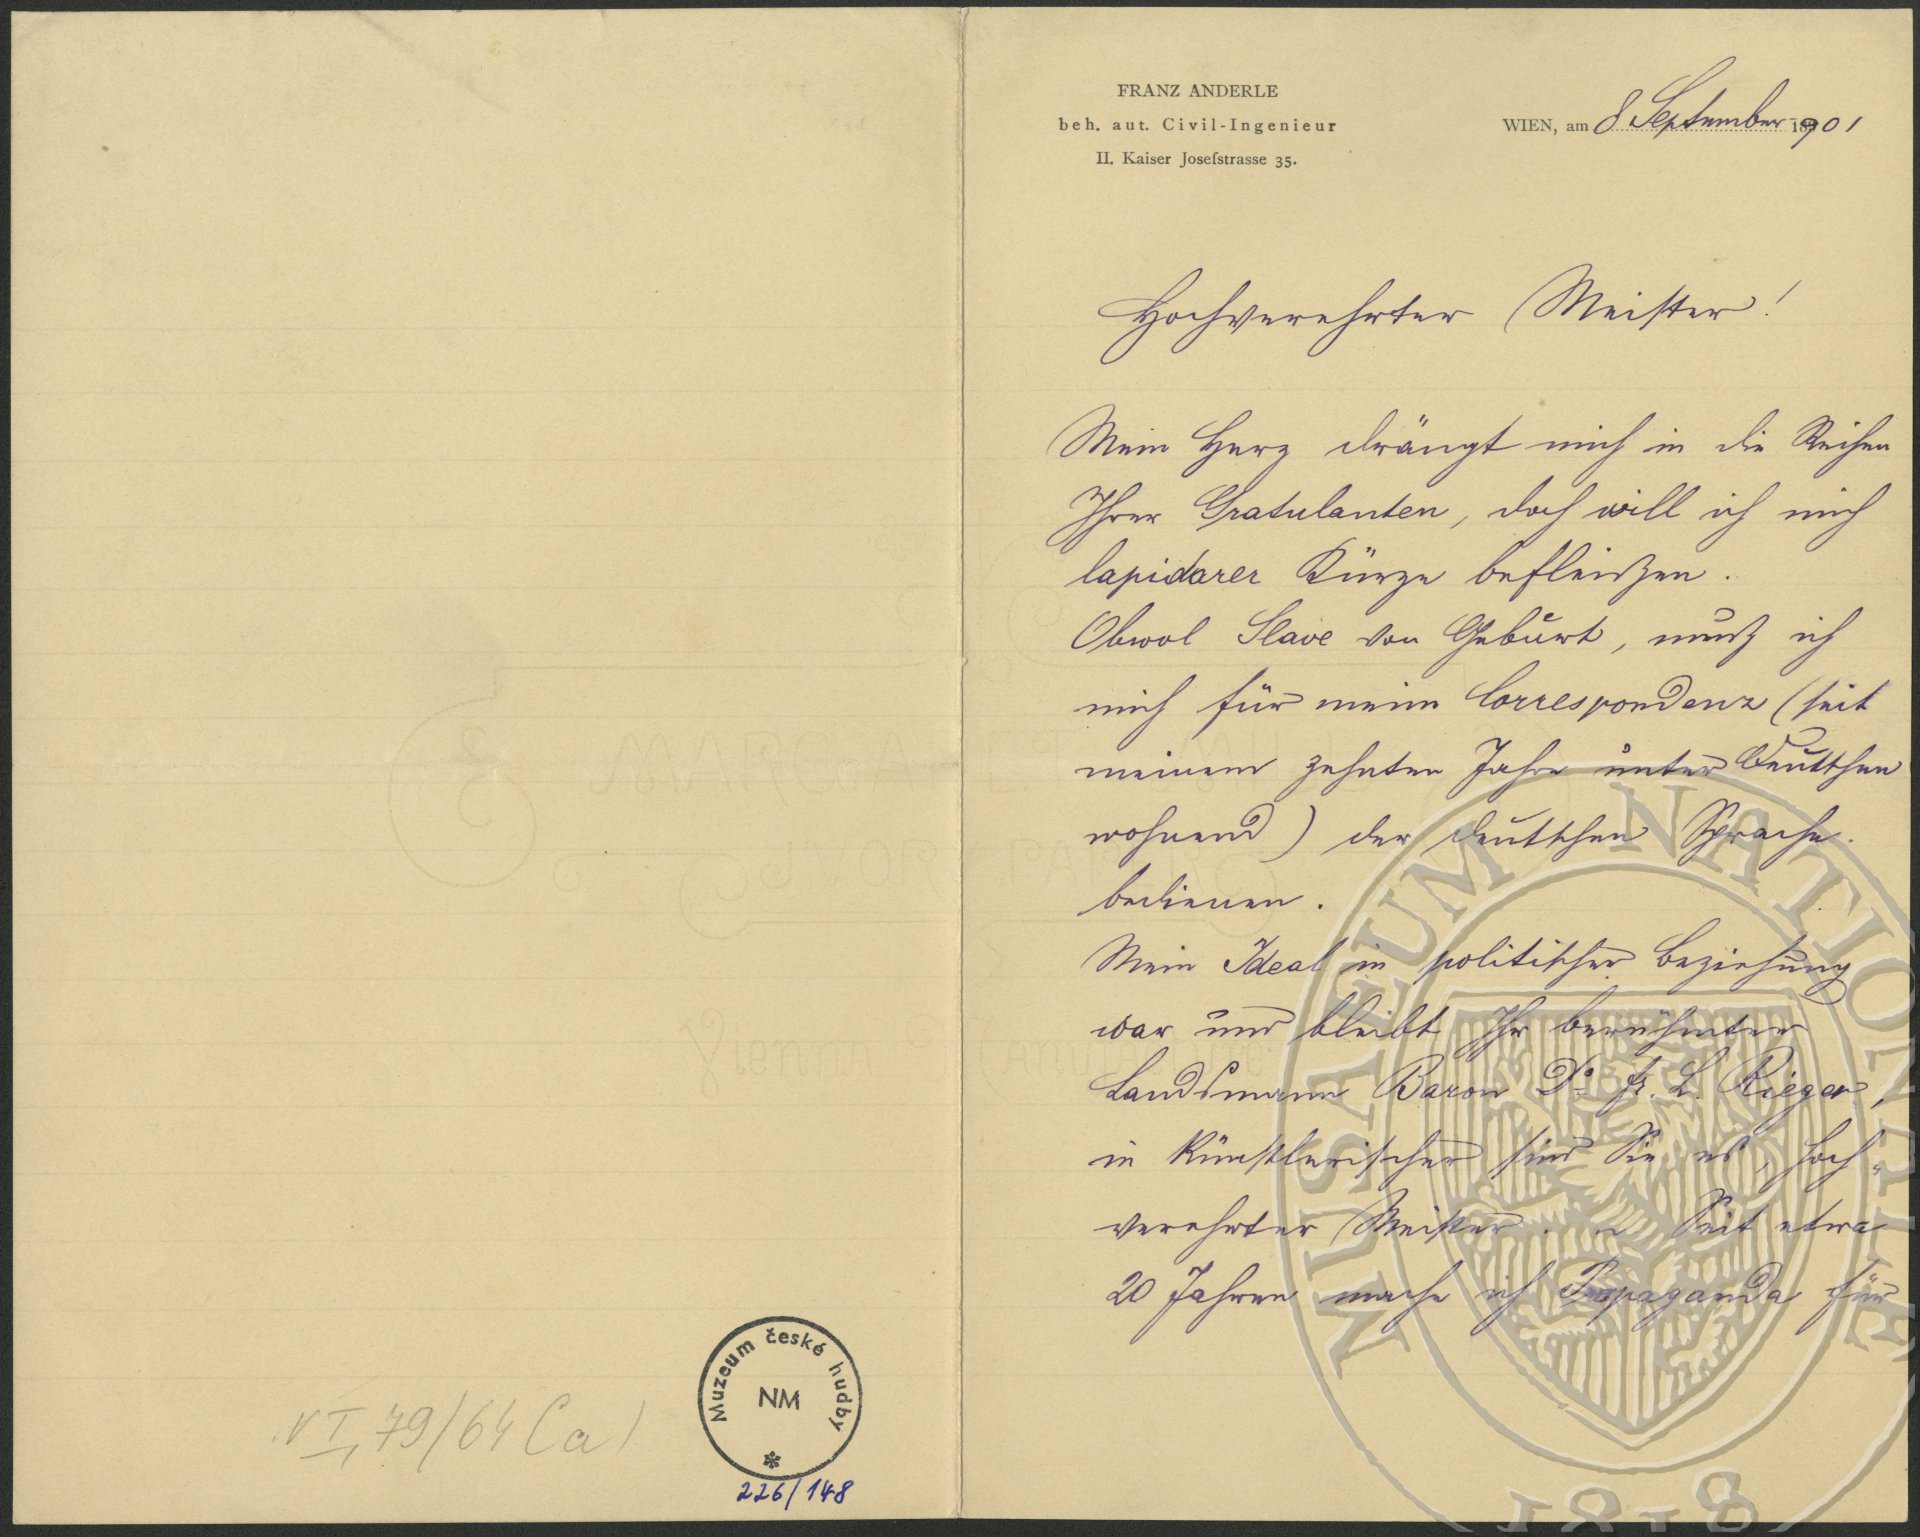 VI, 79/64 Ca)
Muzeum české hudby
NM
226/148
FRANZ ANDERLE
beh. aut. Civil-Ingenieur
II. Kaiser Josefstrasse 35.
WIEN, am 8 September 1901
Hochverehrter Meister!
Mein Herz drängt mich in die Reihen
Ihrer Gratulanten, doch will ich mich
lapidarer Kürze befleißen.
Obwol Slave von Geburt, muß ich
mich für meine Correspondenz (seit
meinem zehnten Jahre unter Deutschen
wohnend) der deutschen Sprache
bedienen.
Mein Ideal in politischer Beziehung
war und bleibt Ihr berühmter
Landsmann Baron Dr Fr. L. Rieger,
in künstlerischer sind Sie es, hoch-
verehrter Meister. Seit etwa
20 Jahren mache ich Propaganda für
MUSAEUM NATIONALE
1818